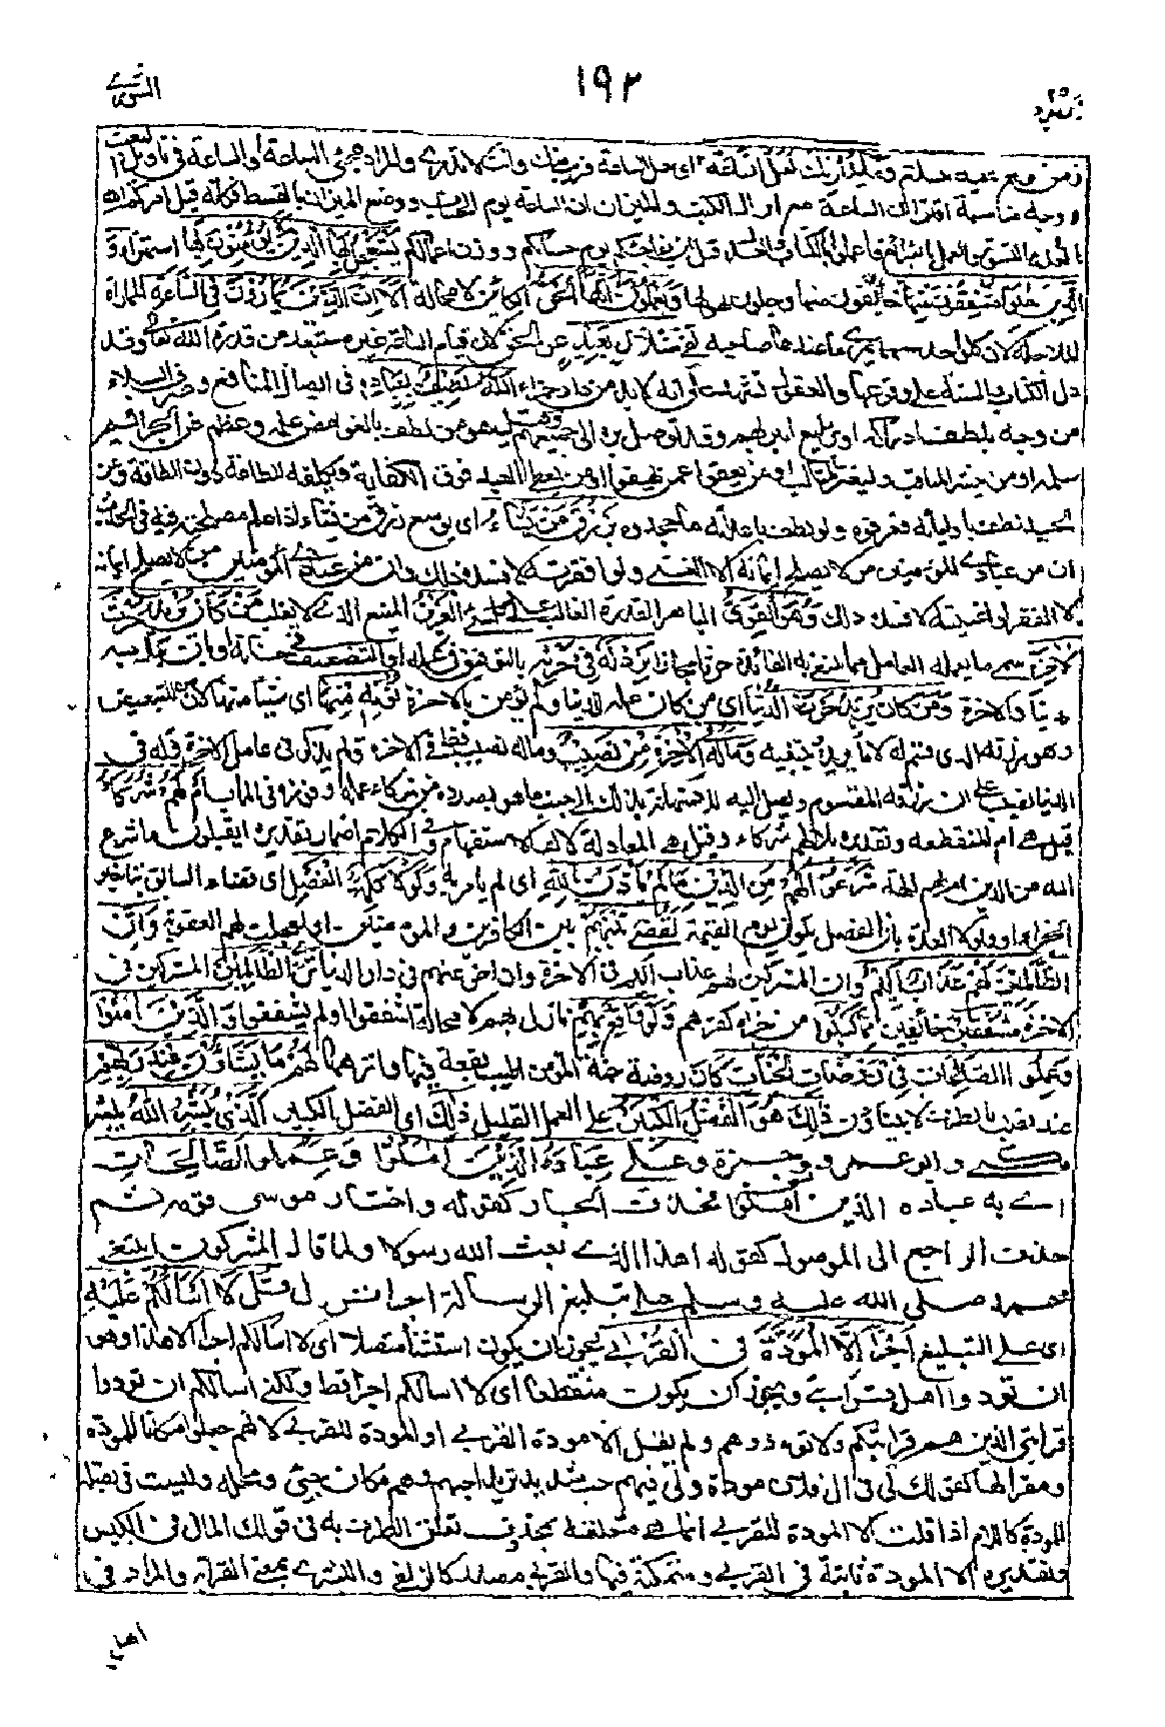 ١٩٢
الشورى
وجه مناسبة اقتراب الساعة مع انزال الكتب والميزان ان الساعة يوم الحساب ووضع الميزان بالقسط فكانه قيل امركم الله
بالعدل والتسوية والعمل بالشرائع فاعملوا بالكتاب والعدل قبل ان يفاجئكم يوم حسابكم ووزن اعمالكم يستعجل بها الذين لا يؤمنون بها استهزاء و
الذين امنوا مشفقون منها خائفون منها وجلون لهولها ويعلمون انها الحق الكائن لا محالة الا ان الذين يمارون في الساعة المماراة
الملاحة لان كل واحد منهما يمري ما عند صاحبه لفي ضلال بعيد عن الحق لان قيام الساعة غير مستبعد من قدرة الله تعالى وقد
دل الكتاب والسنة على وقوعها والعقول تشهد على انه لا بد من دار جزاء الله لطيف بعباده في ايصال المنافع وصرف البلاء
من وجه يلطف ادراكه او بر بليغ البر بهم وقد توصل بره الى جميعهم وقيل هو من لطف بالغوامض علمه وعظم عن الجرائم
حلمه او من ينشر المناقب ويستر المثالب او من يعفو عمن يهفو او من يعطي العبد فوق الكفاية ويكلفه للطاعة دون الطاقة وعن
الجنيد لطف باوليائه فعرفوه ولو لطف باعدائه ما جحدوه يرزق من يشاء اي يوسع رزق من يشاء اذا علم مصلحته فيه في الحديث
ان من عبادي المؤمنين من لا يصلح ايمانه الا الغنى ولو افقرته لافسده ذلك وان من عبادي المؤمنين من لا يصلح ايمانه
الا الفقر ولو اغنيته لافسده ذلك وهو القوي الباهر القدرة الغالب على كل شيء العزيز المنيع الذي لا يغلب من كان يريد حرث
الاخرة سمى ما يعمله العامل مما يبتغي به الفائدة حرثا مجازا نزد له في حرثه بالتوفيق في عمله او التضعيف في حسناته او بان ينال به
الدنيا والاخرة ومن كان يريد حرث الدنيا اي من كان عمله للدنيا ولم يؤمن بالاخرة نؤته منها اي شيئا منها لان من للتبعيض
وهو رزقه الذي قسم له لا ما يريده ويبتغيه وما له في الاخرة من نصيب وماله نصيب قط في الاخرة ولم يذكر في عامل الاخرة وله في
الدنيا نصيب على ان رزقه المقسوم يصل اليه للاستهانة بذلك الى جنب ما هو بصدده من زكاء عمله وفوزه في المآب ام لهم شركاء
قيل هي ام المنقطعة وتقديره بل الهم شركاء وقيل هي المعادلة لالف الاستفهام وفي الكلام اضمار تقديره ايقبلون ما شرع
الله من الدين ام لهم الهة شرعوا لهم من الدين ما لم يأذن به الله اي لم يامر به ولولا كلمة الفصل اي القضاء السابق بتاجيل
الجزاء او ولولا العدة بان الفصل يكون يوم القيمة لقضي بينهم بين الكافرين والمؤمنين او لعجلت لهم العقوبة وان
الظالمين لهم عذاب اليم وان المشركين لهم عذاب اليم في الاخرة وان اخر عنهم في دار الدنيا ترى الظالمين المشركين في
الاخرة مشفقين خائفين مما كسبوا من جزاء كفرهم وهو واقع بهم نازل بهم لا محالة اشفقوا او لم يشفقوا والذين امنوا
وعملوا الصالحات في روضات الجنات كان روضة جنة المؤمن اطيب بقعة فيها وانزهها لهم ما يشاؤن عند ربهم
عند نصب بالظرف لا بيشاؤن ذلك هو الفضل الكبير على العمل القليل ذلك اي الفضل الكبير الذي يبشر الله يبشر
مكي وابو عمرو وحمزة وعلي عباده الذين امنوا وعملوا الصالحات
اي به عباده الذين امنوا فحذف الجار كقوله واختار موسى قومه ثم
حذف الراجع الى الموصول كقوله اهذا الذي بعث الله رسولا ولما قال المشركون ايبتغي
محمد صلى الله عليه وسلم على تبليغ الرسالة اجرا نزل قل لا اسألكم عليه
اي على التبليغ اجرا الا المودة في القربى يجوز ان يكون استثناء متصلا اي لا اسألكم اجرا الا هذا وهو
ان تودوا اهل قرابتي ويجوز ان يكون منقطعا اي لا اسالكم اجرا قط ولكني اسالكم ان تودوا
قرابتي الذين هم قرابتكم ولا تؤذوهم ولم يقل الا مودة القربى او المودة للقربى لانهم جعلوا مكانا للمودة
ومقرا لها كقولك لي في ال فلان مودة ولي فيهم حب شديد تريد احبهم وهم مكان حبي ومحله وليست في بصلة
للمودة كاللام اذا قلت الا المودة للقربى انما هي متعلقة بمحذوف تعلق الظرف به في قولك المال في الكيس
وتقديره الا المودة ثابتة في القربى ومتمكنة فيها والقربى مصدر كالزلفى والبشرى بمعنى القرابة والمراد في
اهل